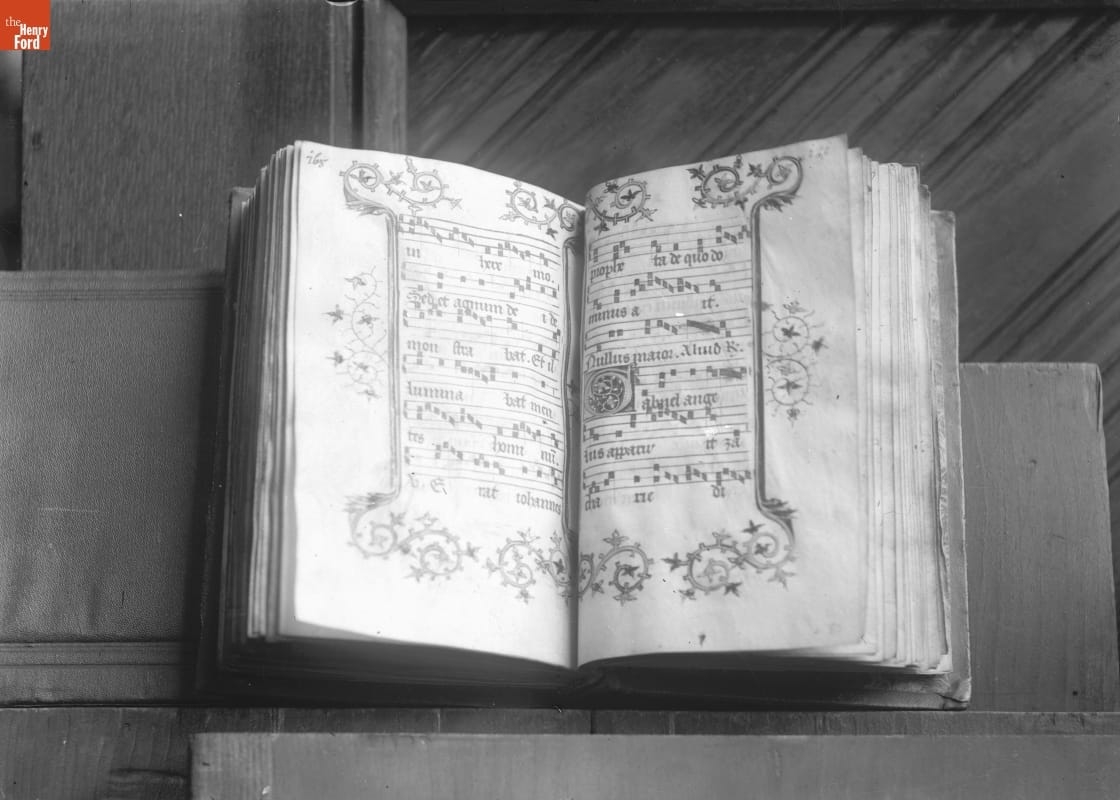 the
Henry
Ford
165
in here mo.
Sed et agnum de i de
mon stra bat. Et il
lumina bat men
tes homi nū.
V. E rat iohannes
prophe ta de quo do
minus a it.
Nullus maior. Aliud R.
abriel ange
lus apparu it za
cha rie di